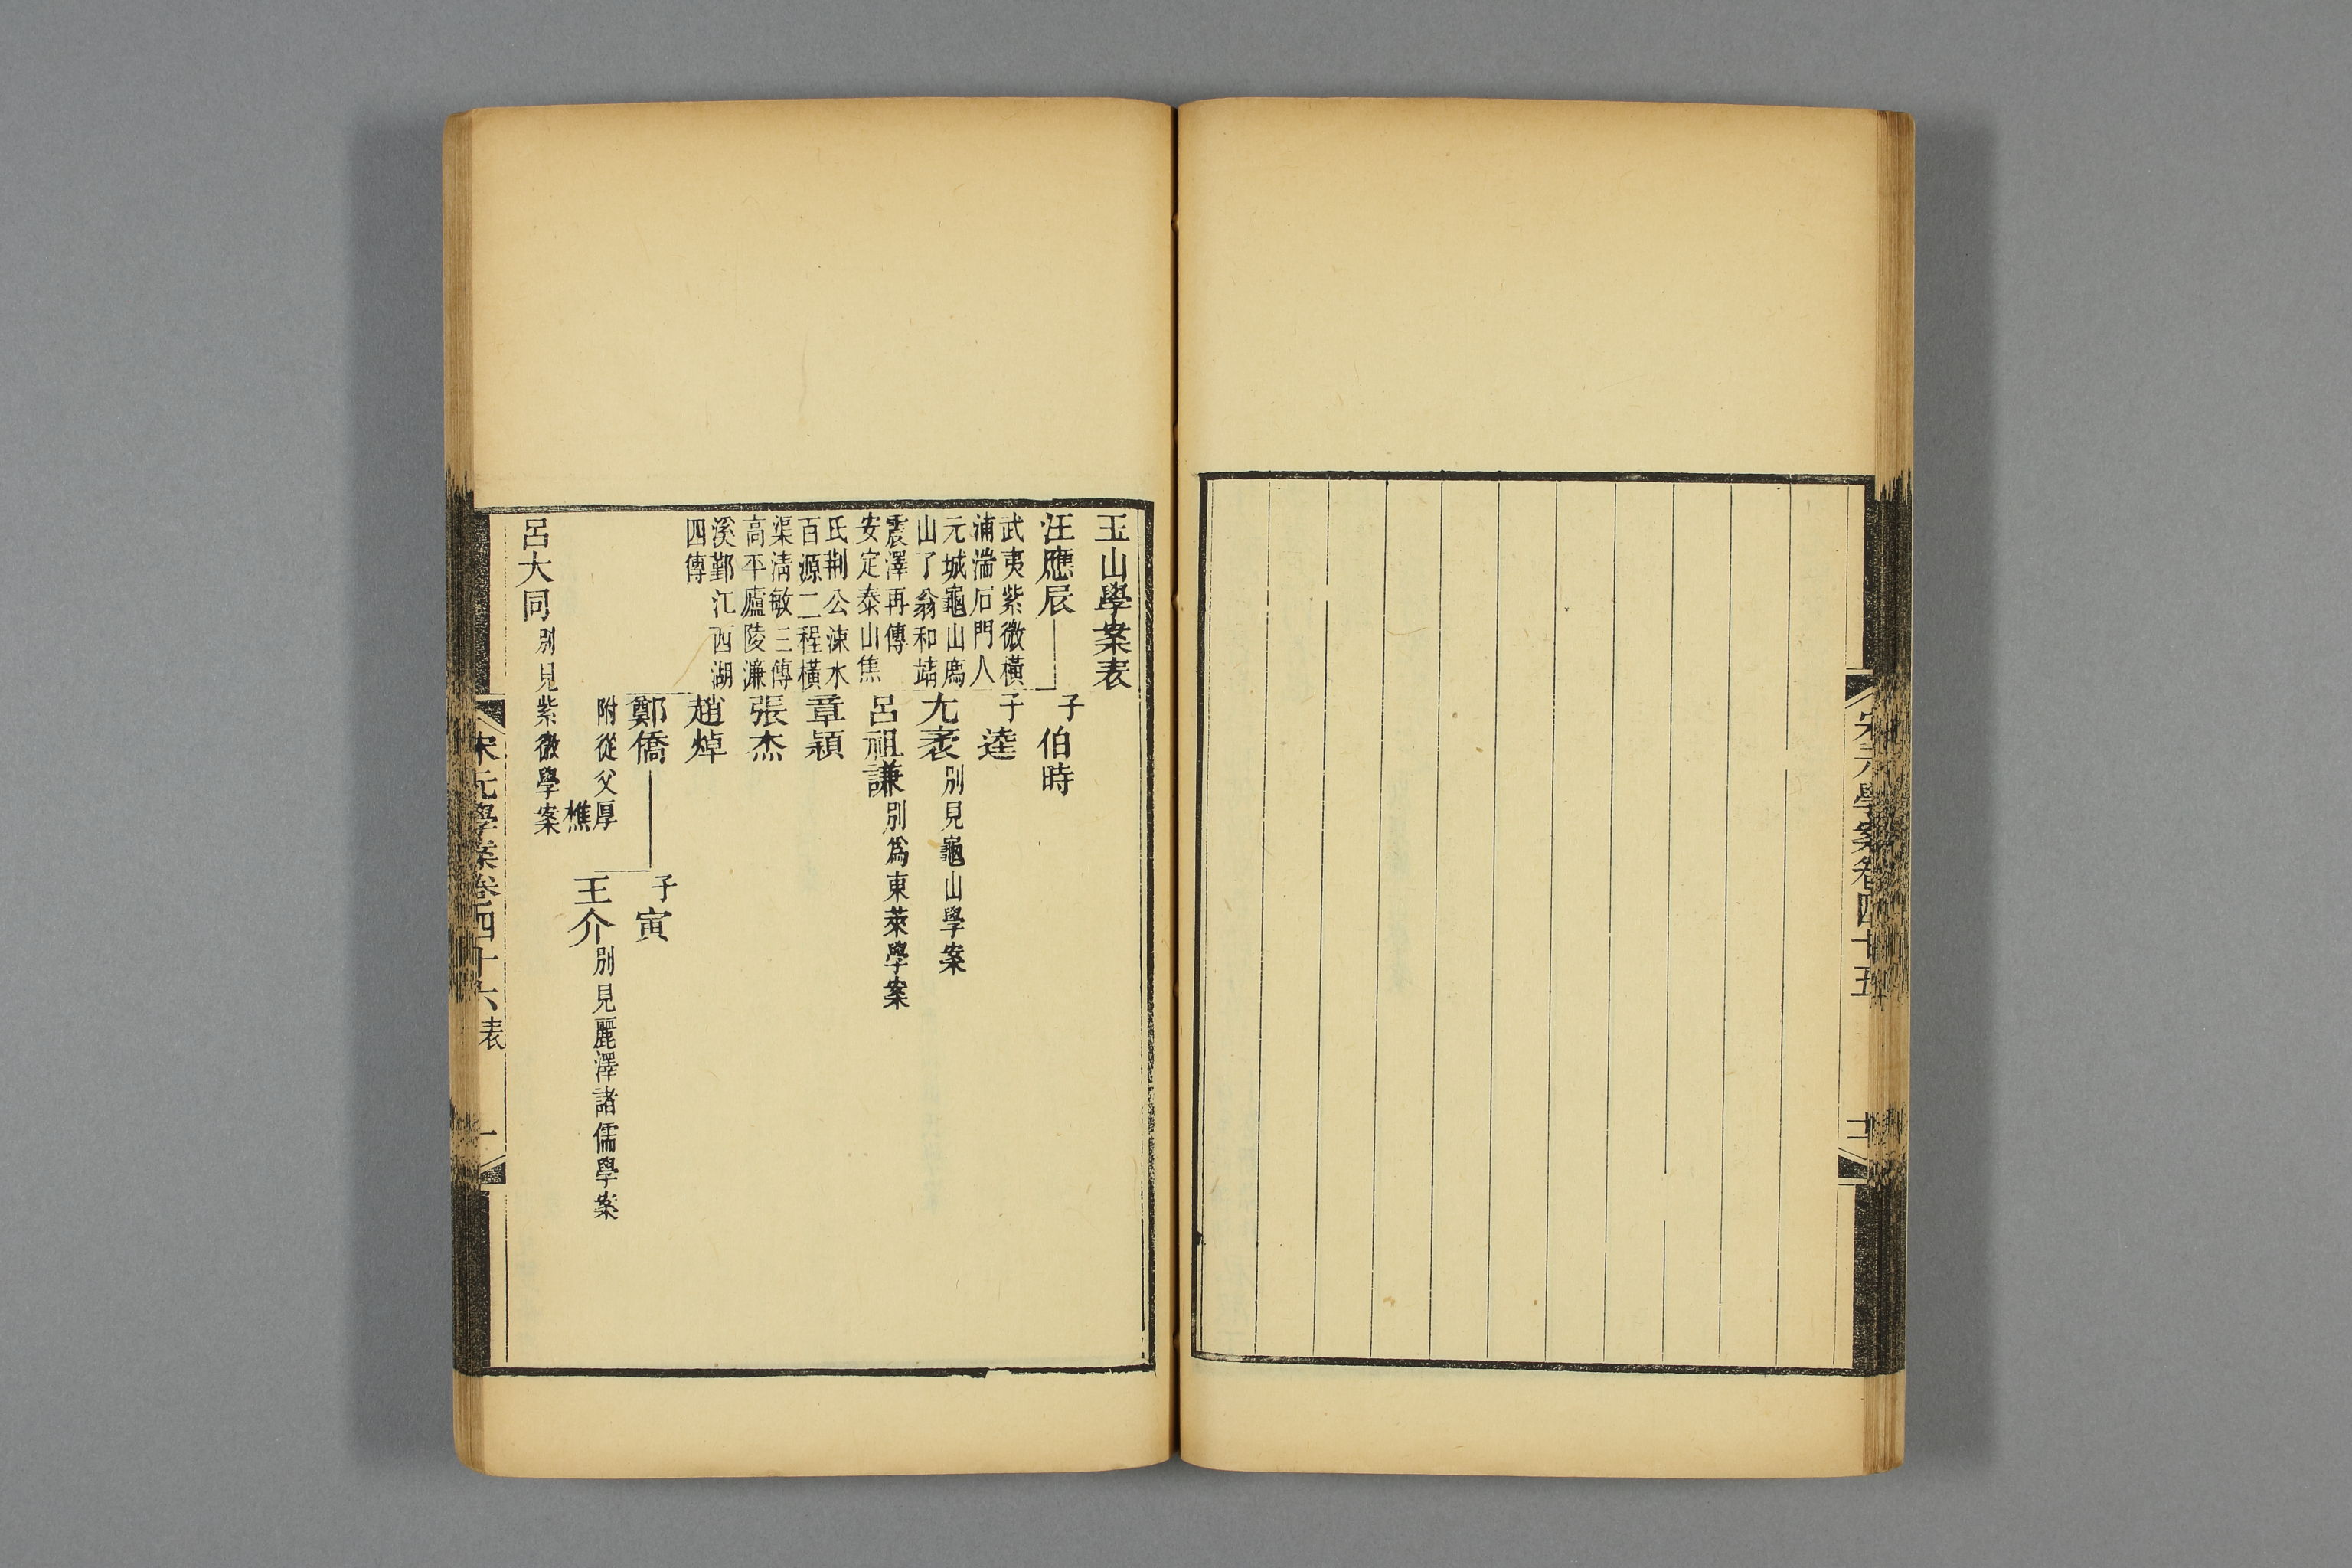 宋元學案卷四十五
十二
玉山學案表
汪應辰
武夷紫微橫
浦湍石門人
元城龜山廌
山了翁和靖
震澤再傳
安定泰山焦
氏荆公涑水
百源二程橫
渠清敏三傳
高平廬陵濂
溪鄞江西湖
四傳
子伯時
子逵
尤袤別見龜山學案
呂祖謙別爲東萊學案
章穎
張杰
趙焯
鄭僑
附從父厚
樵
子寅
王介別見麗澤諸儒學案
呂大同別見紫微學案
宋元學案卷四十六表
一